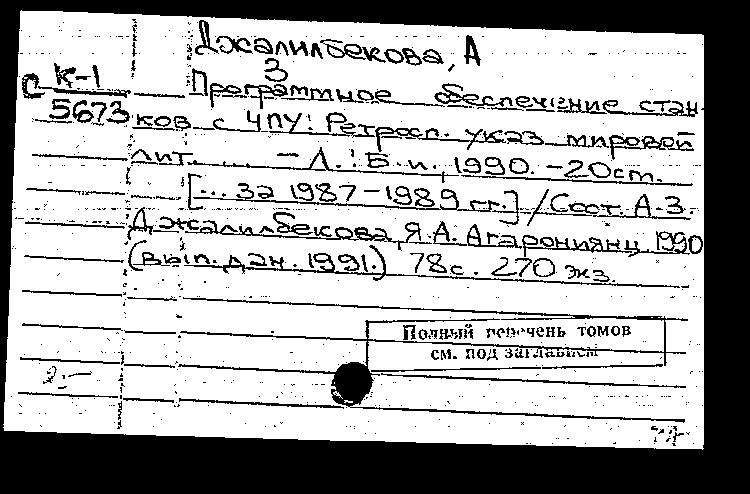 Джалилбекова, А
З
С К-1
5673
Программное обеспечение стан-
ков с ЧПУ: Ретросп. указ мировой
лит. ... - Л.: Б.и., 1990. - 20 см.
[... за 1987-1989 гг.] / Сост. А.З.
Джалилбекова, Я.А. Агарониянц 1990
(вып. дан. 1991.) 78 с. 270 экз.
Полный перечень томов
см. под заглавием
2:-